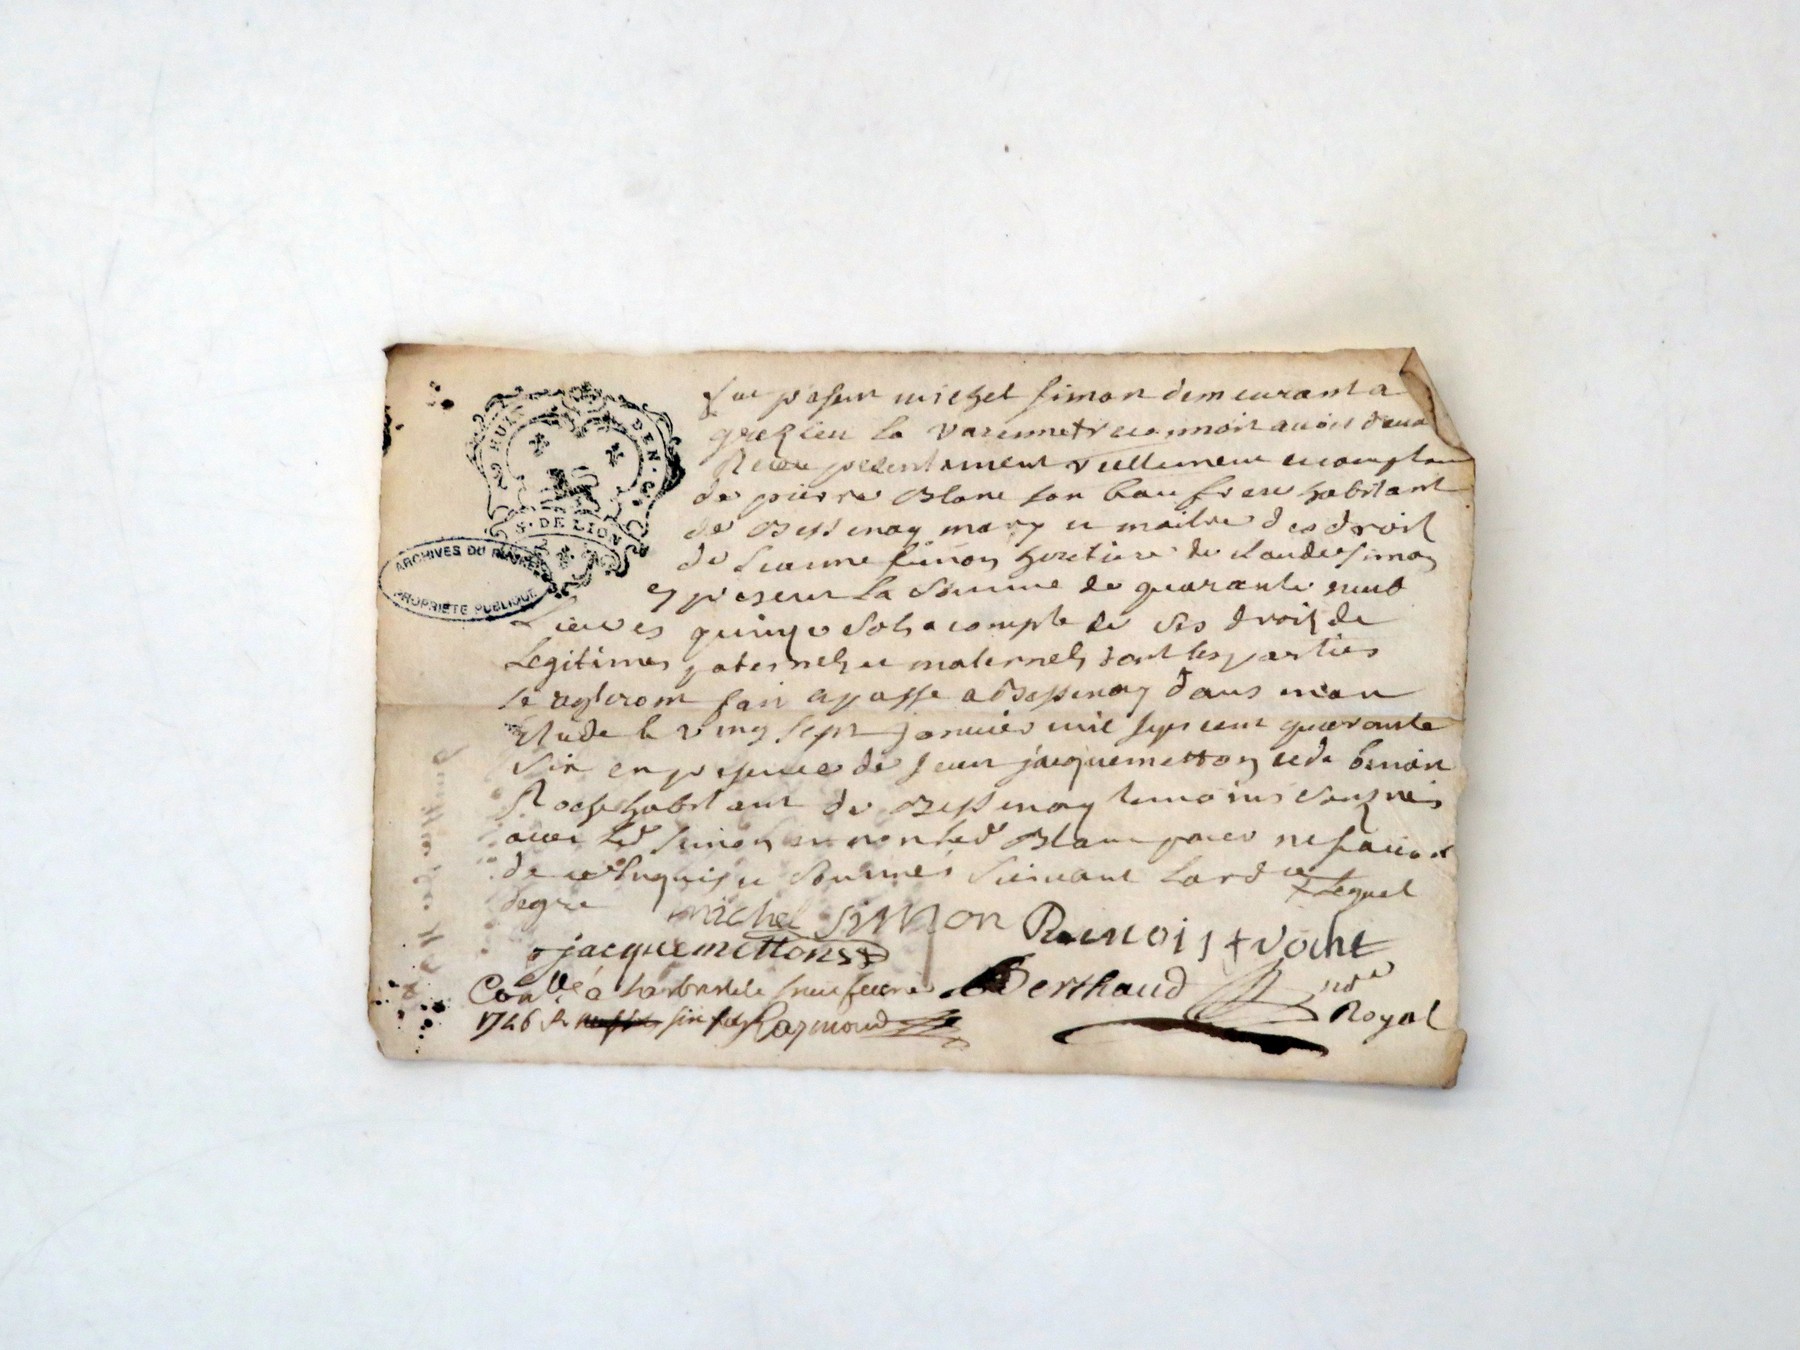 DEN. S.
G. DE LION
ARCHIVES DU RHÔNE
PROPRIÉTÉ PUBLIQUE
fut presen michel simon demeurant a
grezieu la varenne recennoit avoir
Receu presentement reellement
de pierre Blanc son beau frere habitant
de Bessenay mary et maitre des droit
de Jeanne simon heretiere de claude simon
la somme de quarante neuf
Livres quinze sols a compte de ses droit de
Legitimes paternels et maternels dont les parties
se regleront fait a passe a Bessenay dans mon
Etude le vingt sept janvier mil sept cent quarante
six en presence de jean jacquemetton et de benoit
Roche habitant de Bessenay temoins
avec led simon et non led Blanc pour ne scavoir
de ce enquis et sommés suivant lord ce
Lequel
degre
michel SIMon Renoist roche
jacquemettons
Berthaud nore
Royal
Conlle a
1746 R six sols Raymond